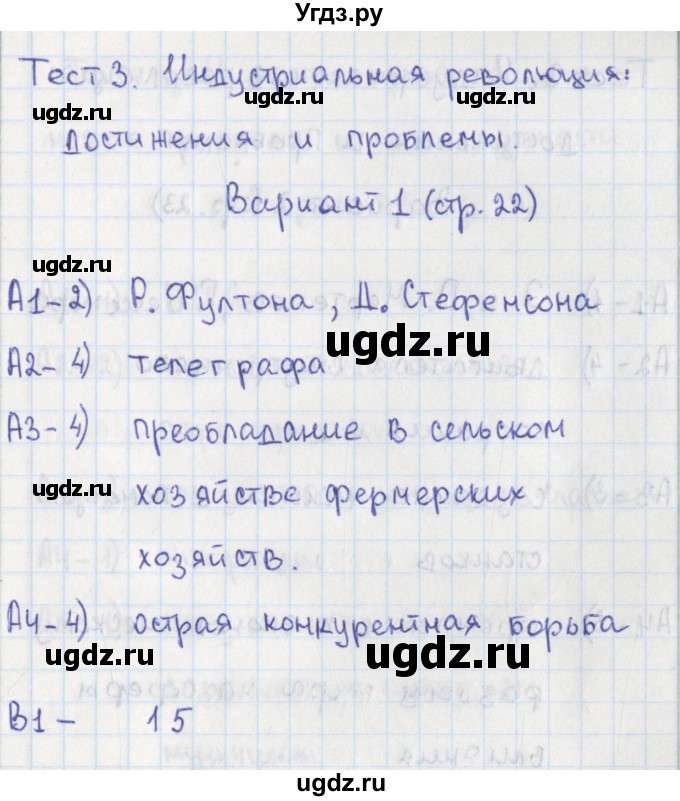 Угдз.ру
Тест 3. Индустриальная революция:
ugdz.ru ugdz.ru ugdz.ru
достижения и проблемы.
Вариант 1 (стр. 22)
ugdz.ru
А1-2) Р. Фултона, Д. Стефенсона
ugdz.ru
А2-4) телеграфа
А3-4) преобладание в сельском
ugdz.ru
хозяйстве фермерских
хозяйств.
А4-4) острая конкурентная борьба
ugdz.ru ugdz.ru
В1 - 15
ugdz.ru ugdz.ru
ugdz.ru